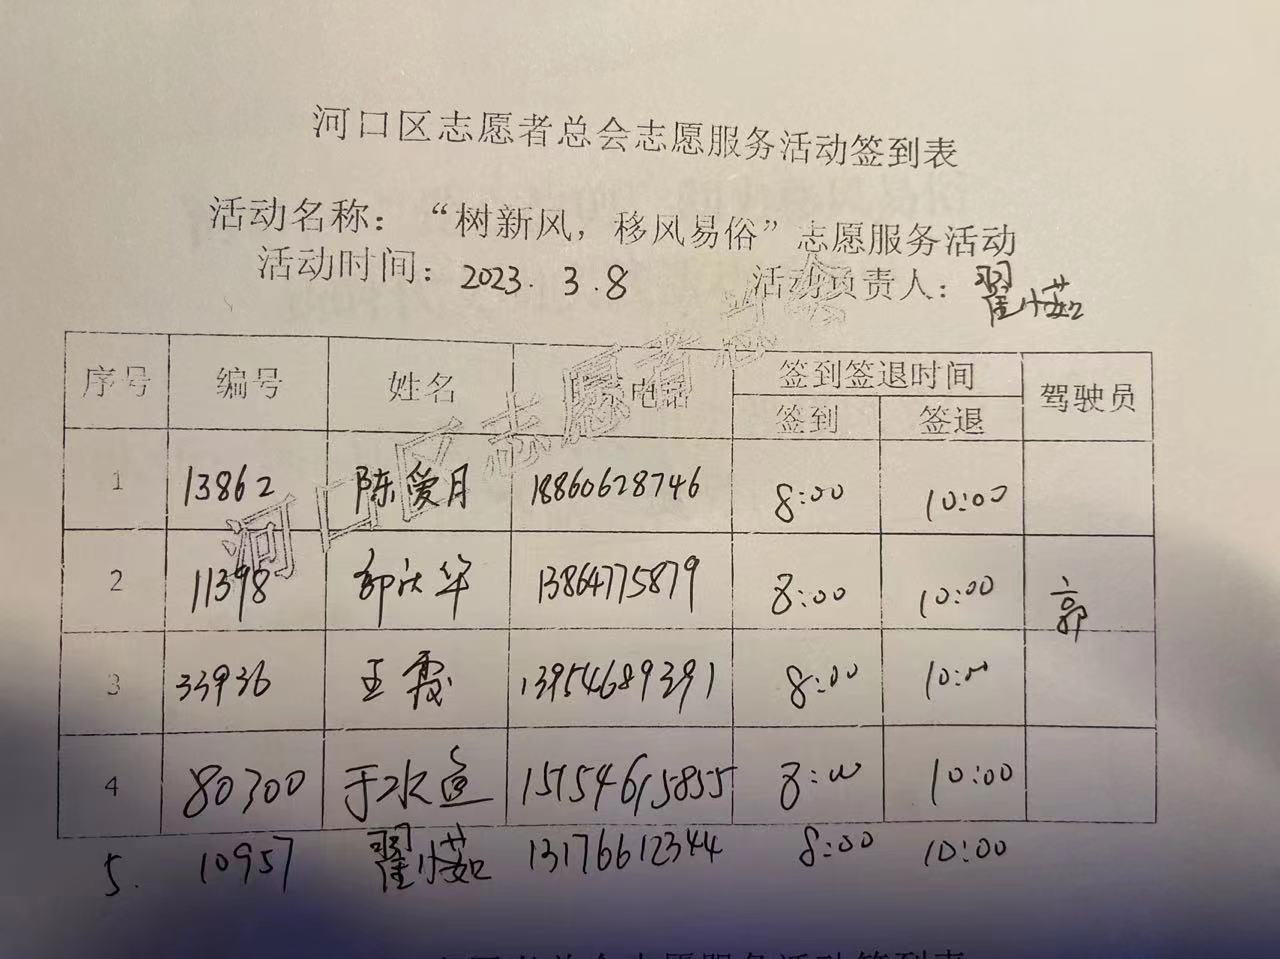 河口区志愿者总会志愿服务活动签到表
活动名称：“树新风，移风易俗”志愿服务活动
活动时间：2023.3.8 活动负责人：翟小茹
序号 编号 姓名 电话 签到签退时间 驾驶员
签到 签退
1 13862 陈爱月 18860628746 8:00 10:00
2 11398 华 13864775879 8:00 10:00 郭
3 33936 王霞 13954689391 8:00 10:00
4 80300 于水 15154615855 8:00 10:00
5. 10957 翟小茹 13176612344 8:00 10:00
河口区志愿者总会